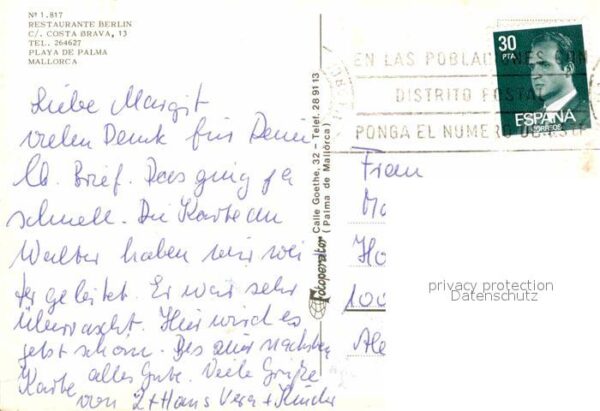 Nº 1.817
RESTAURANTE BERLIN
C/. COSTA BRAVA, 13
TEL. 264627
PLAYA DE PALMA
MALLORCA
Liebe Margit
vielen Dank für Deinen
lb. Brief. Das ging ja
schnell. Die Karte an
Walter haben wir wei
ter geleitet. Er war sehr
überrascht. Hier wird es
jetzt schön. Bis zur nächsten
Karte alles Gute. Viele Grüße
von 2 + Hans Vera + Kinder
Fotoperator Calle Goethe, 32 - Telef. 28 91 13
(Palma de Mallorca)
EN LAS POBLACIONES CON
DISTRITO POSTAL
PONGA EL NUMERO DE ESTE
30
PTA
ESPAÑA
CORREOS
Frau
Ma
Ho
100
Ale
privacy protection
Datenschutz